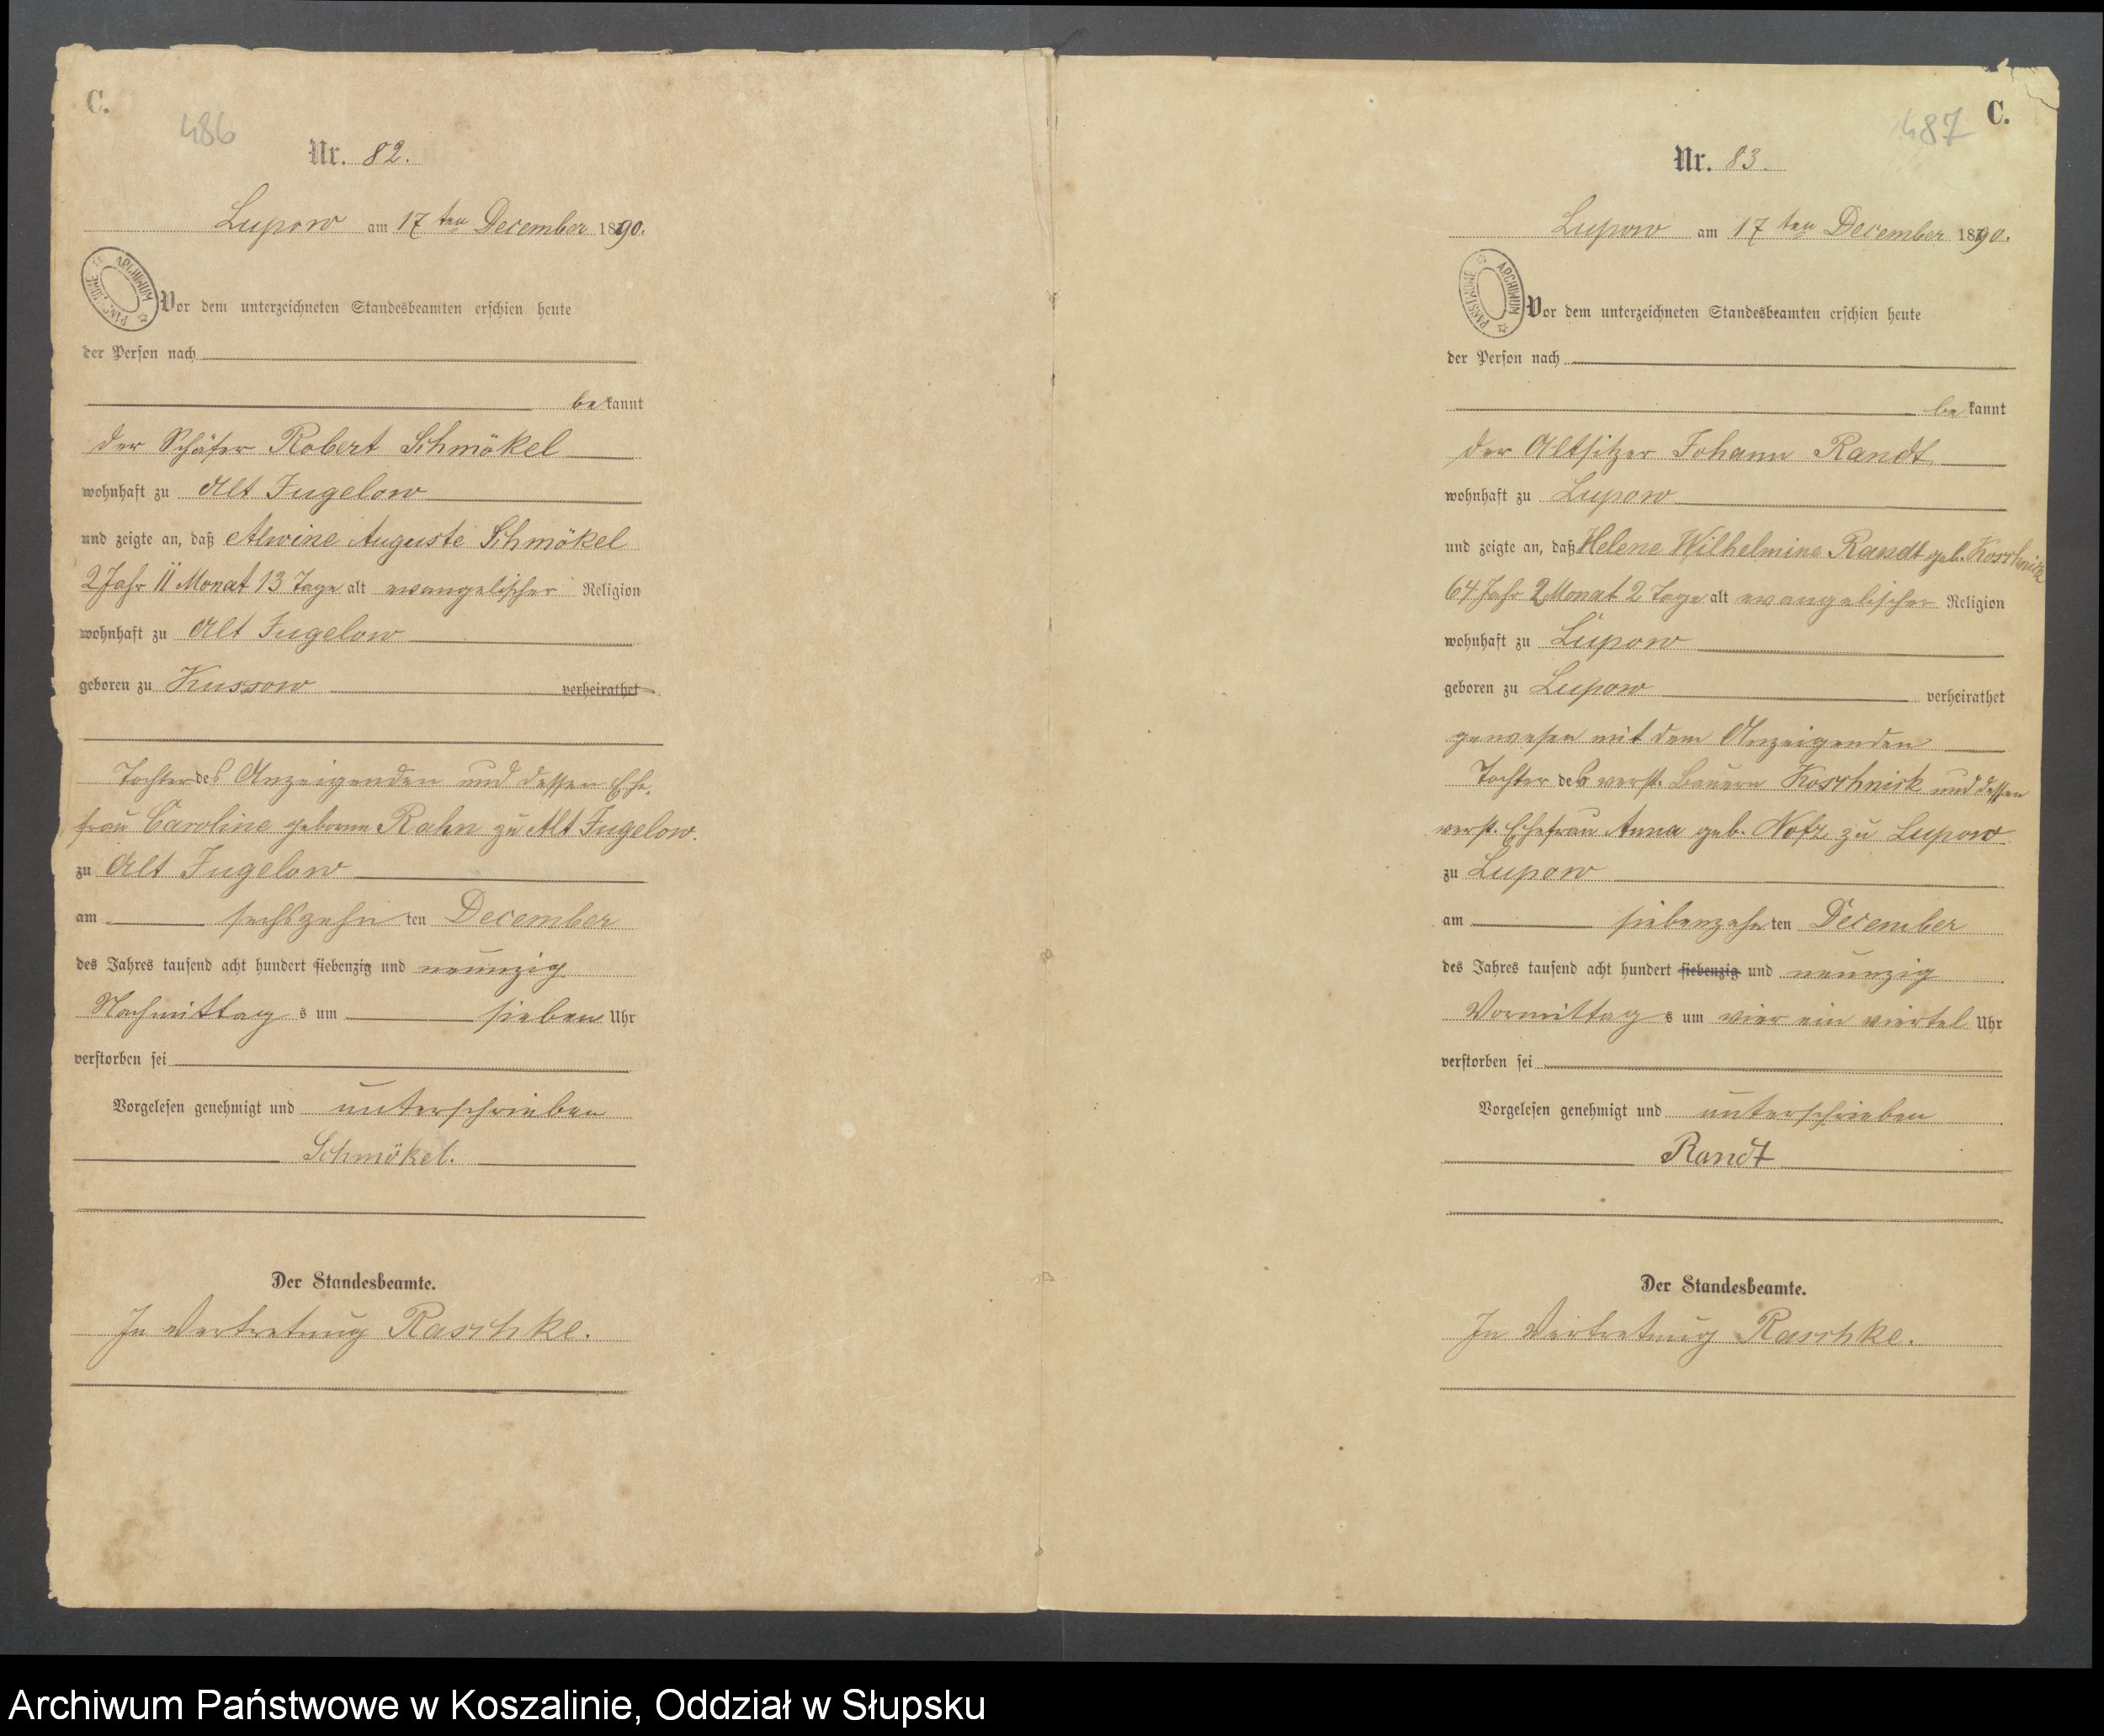 C.
486
Nr. 82.
Lupow am 17ten December 1890.
ARCHIWUM PAŃSTWOWE
Vor dem unterzeichneten Standesbeamten erschien heute
der Person nach
bekannt
der Schäfer Robert Schmökel
wohnhaft zu Alt Jugelow
und zeigte an, daß Alwine Auguste Schmökel
2 Jahr 11 Monat 13 Tage alt evangelischer Religion
wohnhaft zu Alt Jugelow
geboren zu Kussow verheirathet
Tochter des Anzeigenden und dessen Ehe-
frau Caroline geborene Rahn zu Alt Jugelow.
zu Alt Jugelow
am sechszehnten December
des Jahres tausend acht hundert siebenzig und neunzig
Nachmittags um sieben Uhr
verstorben sei
Vorgelesen genehmigt und unterschrieben
Schmökel.
Der Standesbeamte.
In Vertretung Raschke.
487
C.
Nr. 83.
Lupow am 17ten December 1890.
ARCHIWUM PAŃSTWOWE
Vor dem unterzeichneten Standesbeamten erschien heute
der Person nach
bekannt
der Altsitzer Johann Randt
wohnhaft zu Lupow
und zeigte an, daß Helene Wilhelmine Randt geb. Koschnick
64 Jahr 2 Monat 2 Tage alt evangelischer Religion
wohnhaft zu Lupow
geboren zu Lupow verheirathet
gewesen mit dem Anzeigenden
Tochter des verst. Bauern Koschnick und dessen
verst. Ehefrau Anna geb. zu Lupow
zu Lupow
am siebenzehnten December
des Jahres tausend acht hundert siebenzig und neunzig
Vormittags um vier ein viertel Uhr
verstorben sei
Vorgelesen genehmigt und unterschrieben
Randt
Der Standesbeamte.
In Vertretung Raschke.
Archiwum Państwowe w Koszalinie, Oddział w Słupsku